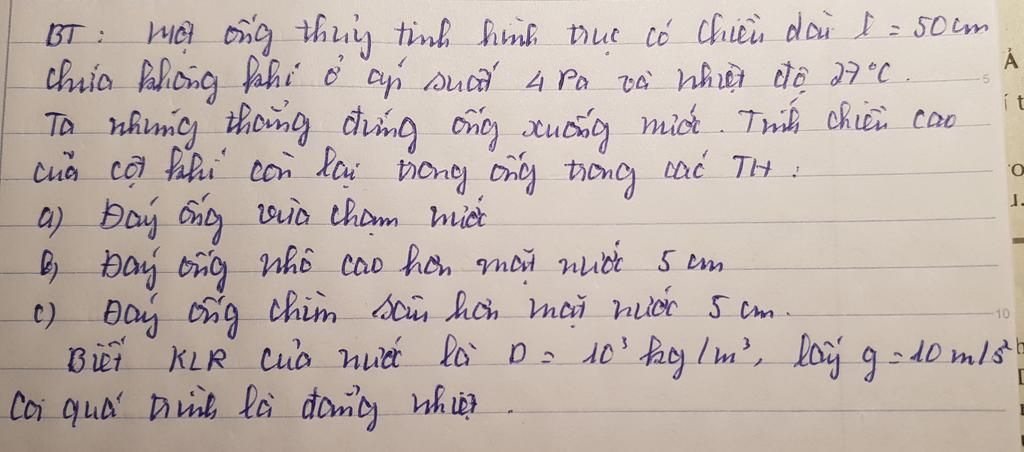 BT : Một ống thủy tinh hình trục có chiều dài l = 50 cm
chứa không khí ở áp suất 4 Pa và nhiệt độ 27°C.
Ta nhúng thẳng đứng ống xuống nước. Tính chiều cao
của cột khí còn lại trong ống trong các TH :
a) Đáy ống vừa chạm nước
b) Đáy ống nhô cao hơn mặt nước 5 cm
c) Đáy ống chìm sâu hơn mặt nước 5 cm.
Biết KLR của nước là D = 10³ kg/m³, lấy g = 10 m/s²
Coi quá trình là đẳng nhiệt.